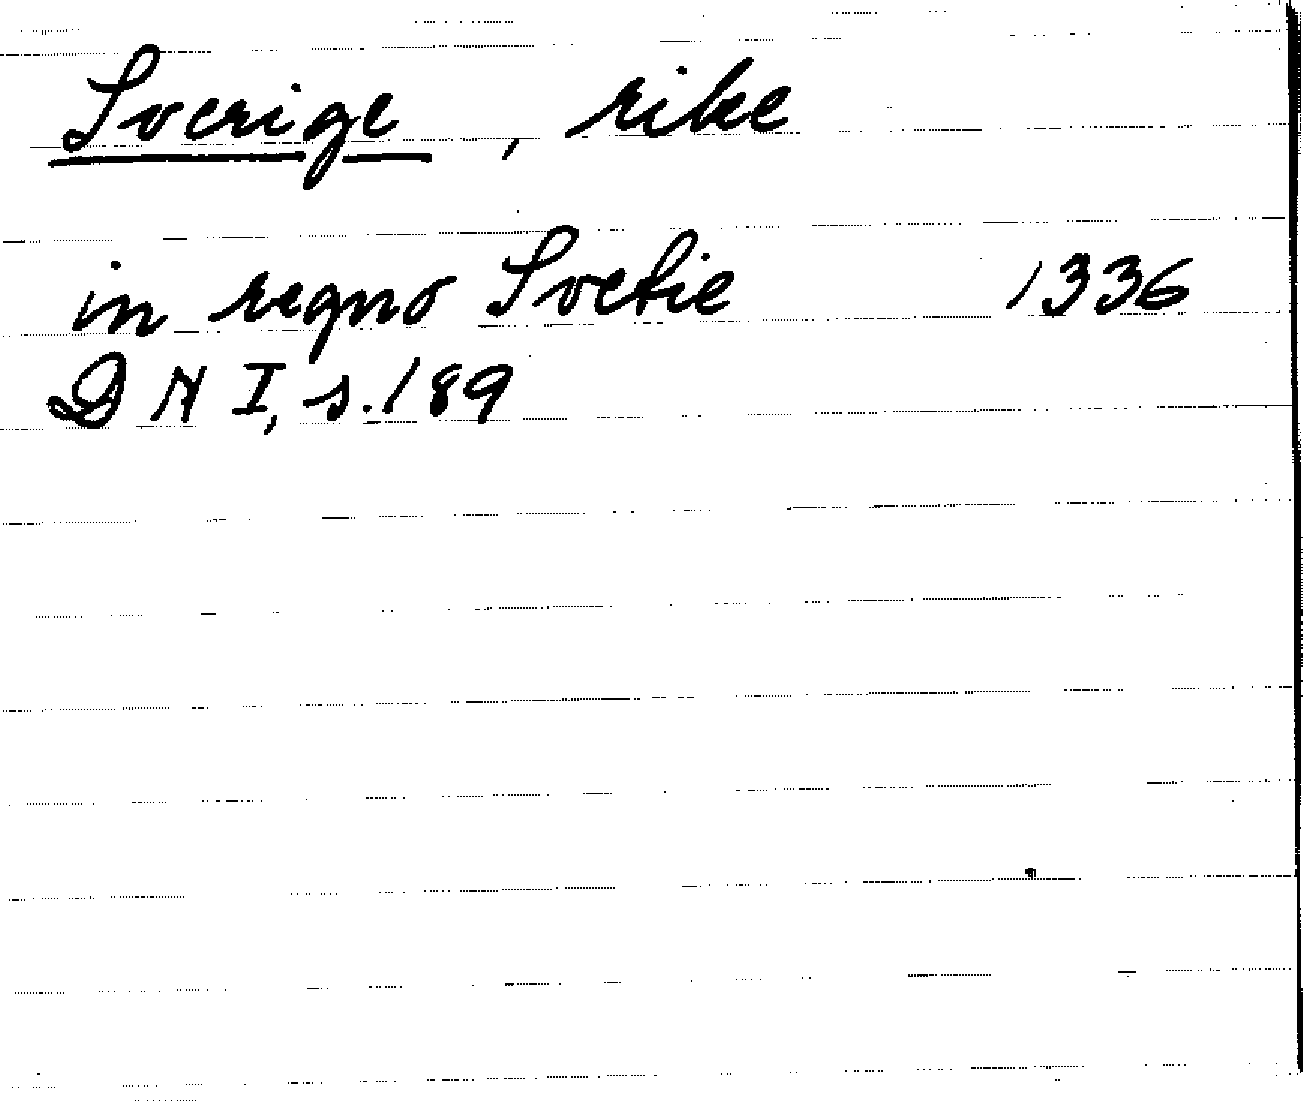 Sverige, rike
in regno Svetie 1336
DN I, s. 189